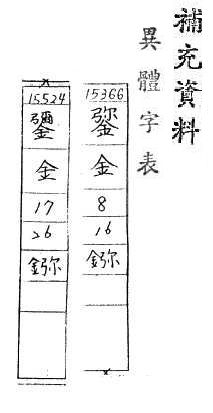 補充資料
異體字表
15366
金
8
16
15524
金
17
26